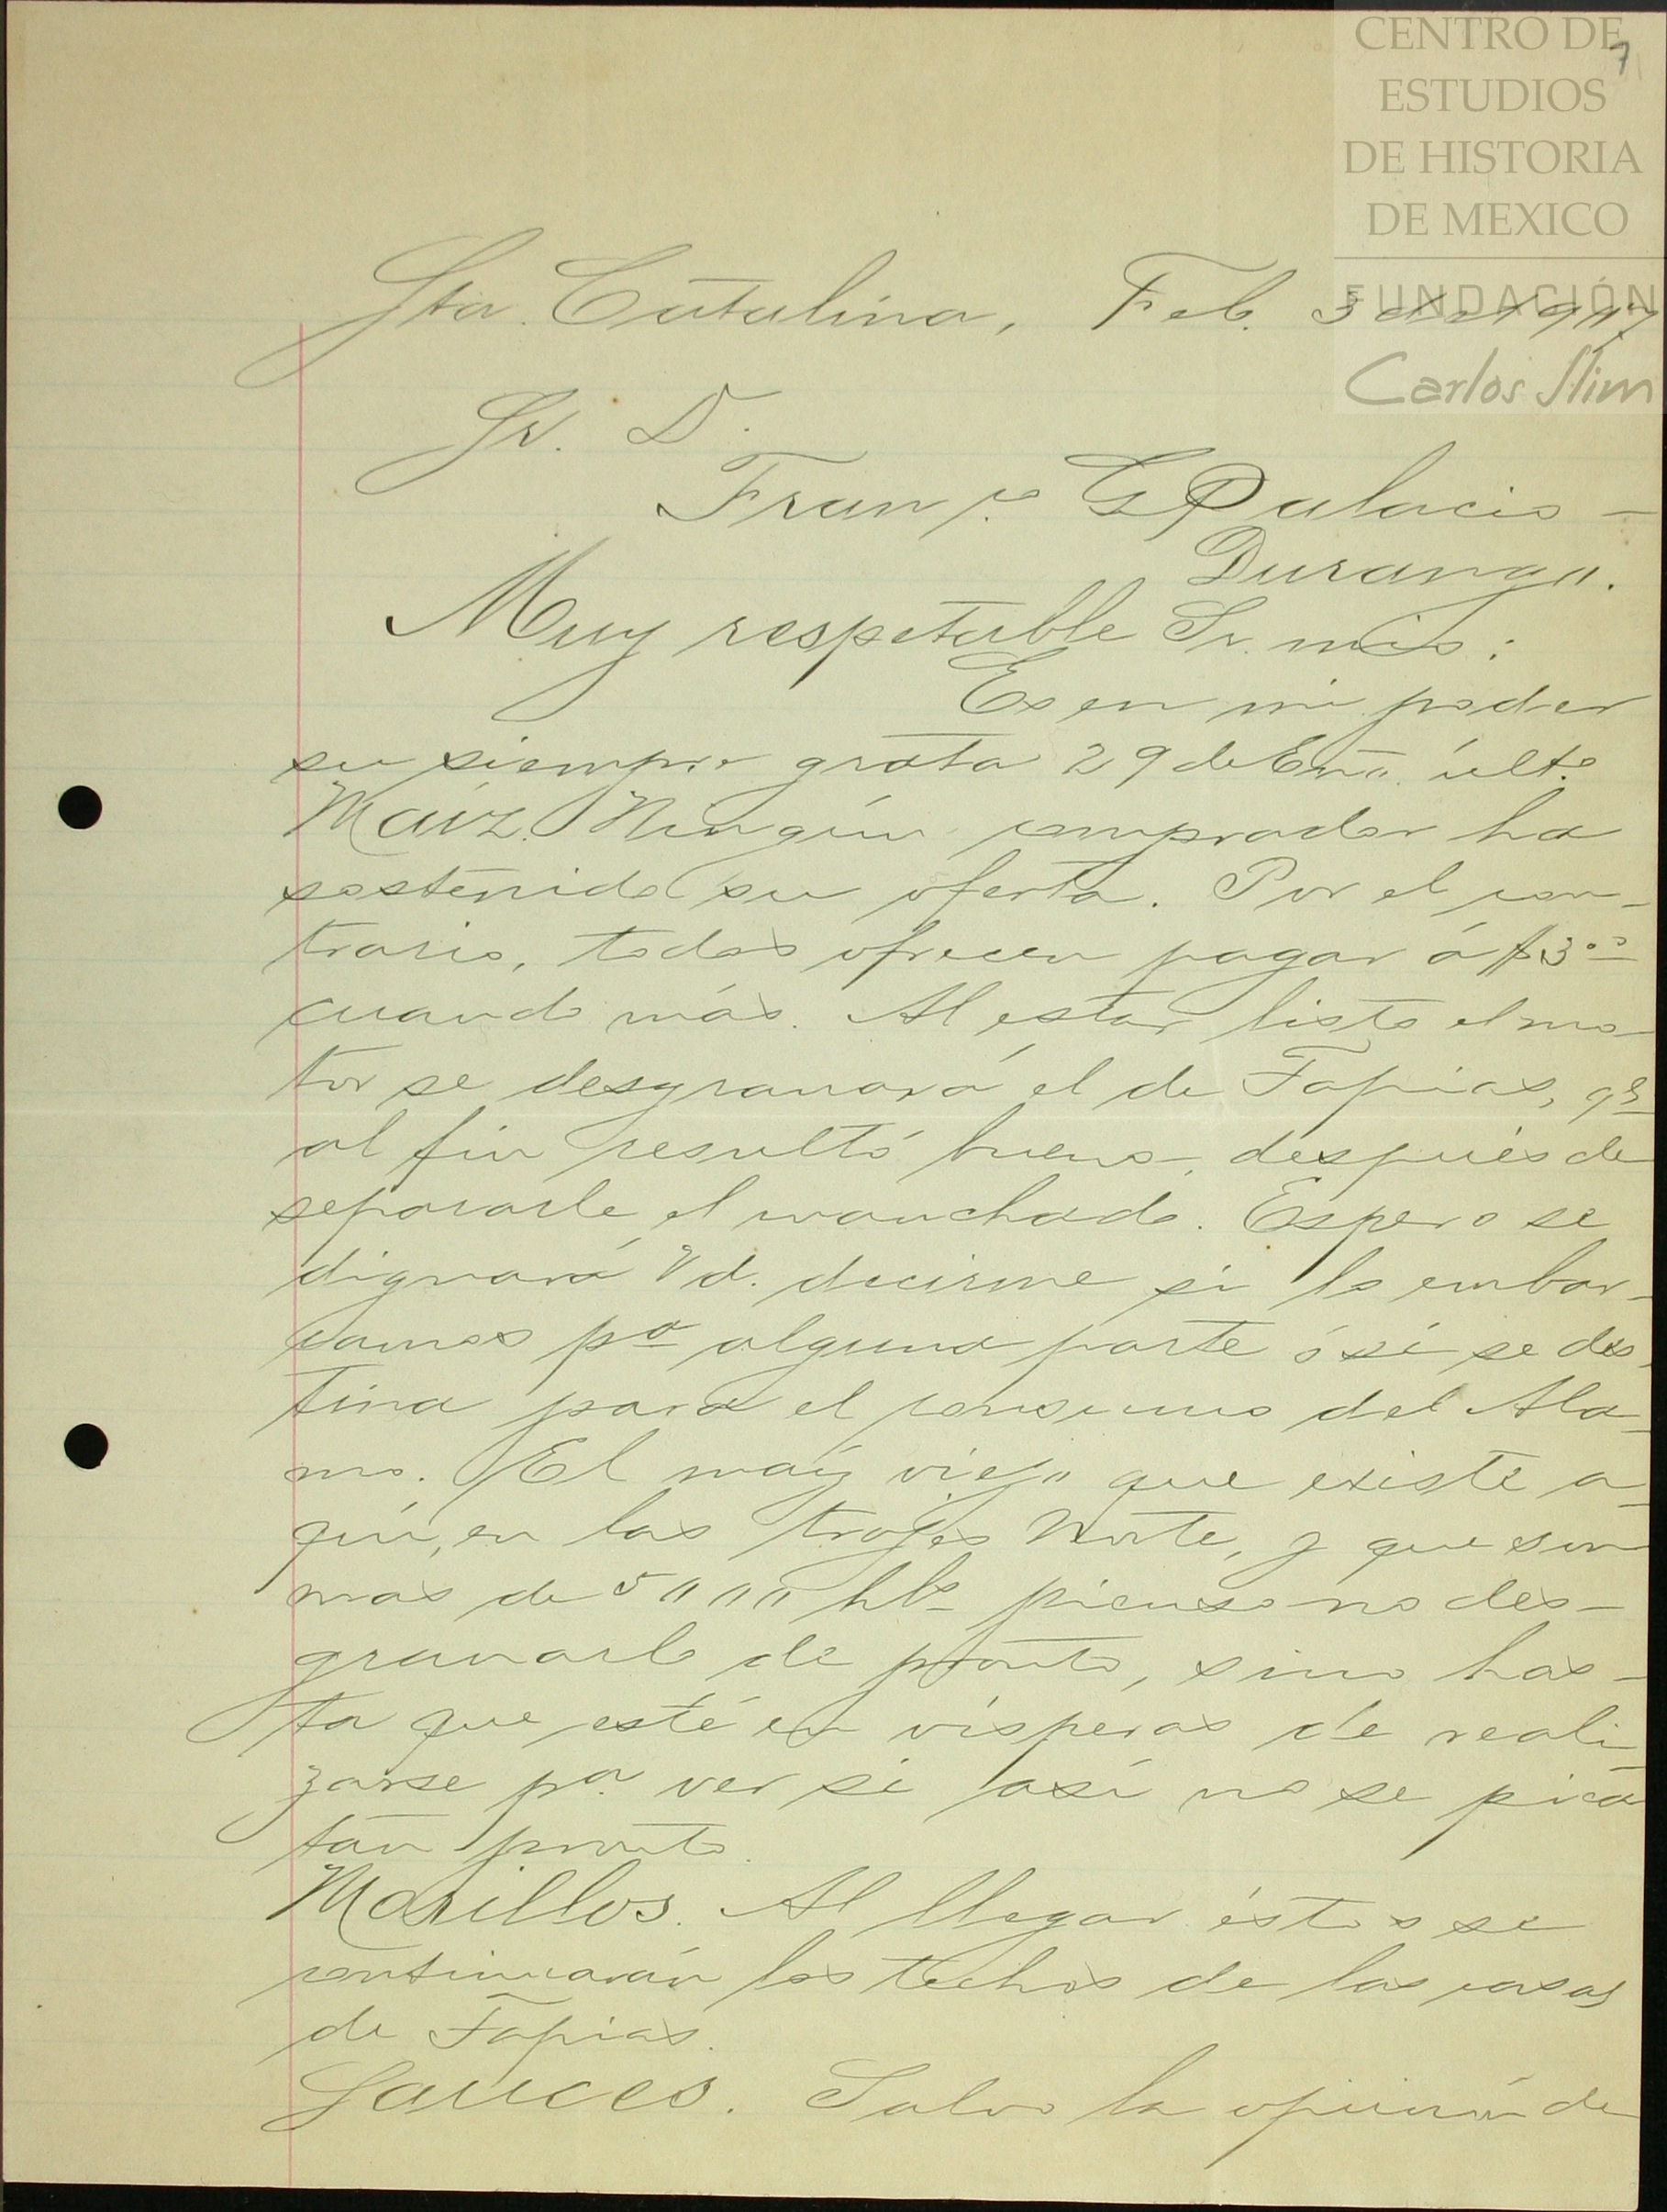 CENTRO DE
ESTUDIOS
DE HISTORIA
DE MEXICO
FUNDACIÓN
Carlos Slim
7
Sta. Catalina, Feb. 3 de
Sr. D.
Franco. G Palacio -
Durango.
Muy respetable Sr. mío:
Es en mi poder
su siempre grata 29 de Eno. últo.
Maíz. Ningún comprador ha
sostenido su oferta. Por el con-
trario, todos ofrecen pagar á $3.00
cuando más. Al estar listo el mo-
tor se desgranará el de Tapias, qe
al fin resultó bueno, después de
separarle el manchado. Espero se
dignará Vd. decirme si lo embar-
camos pa alguna parte ó si se des-
tina para el consumo del Ala-
mo. El maíz viejo que existe a-
quí, en las trojes Norte, y que son
mas de 5000 hls pienso no des-
granarlo de pronto, sino has-
ta que esté en vísperas de reali-
zarse pa. ver si así no se pica
tan pronto.
Morillos. Al llegar éstos se
continuarán los techos de las casas
de Tapias.
Sauces. Salvo la opinión de